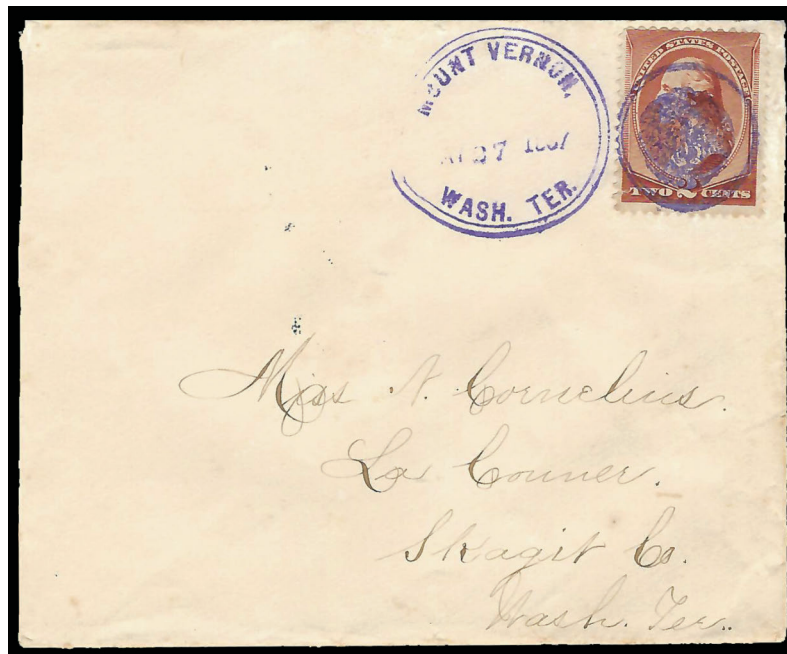 MOUNT VERNON,
27 1887
WASH. TER.
UNITED STATES POSTAGE
TWO 2 CENTS
Miss A. Cornelius.
La Conner.
Skagit Co.
Wash. Ter.